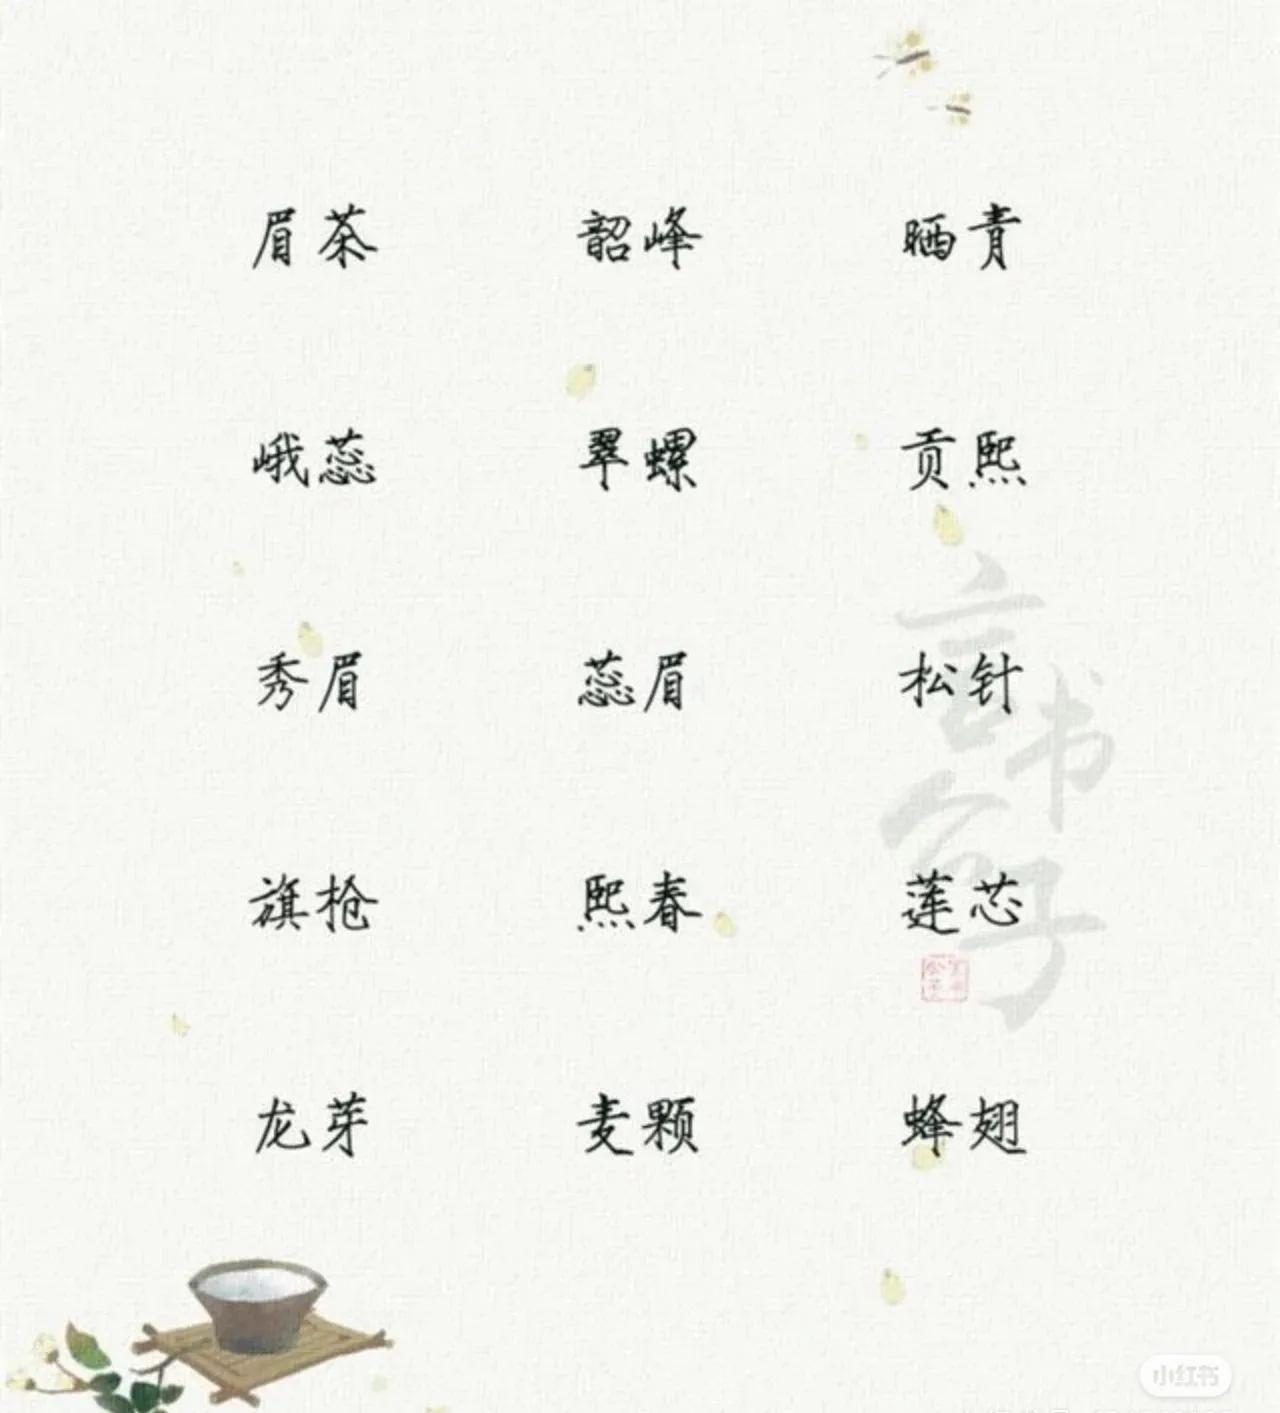 眉茶 韶峰 晒青
峨蕊 翠螺 贡熙
秀眉 蕊眉 松针
旗枪 熙春 莲芯
龙芽 麦颗 蜂翅
言书公子
小红书